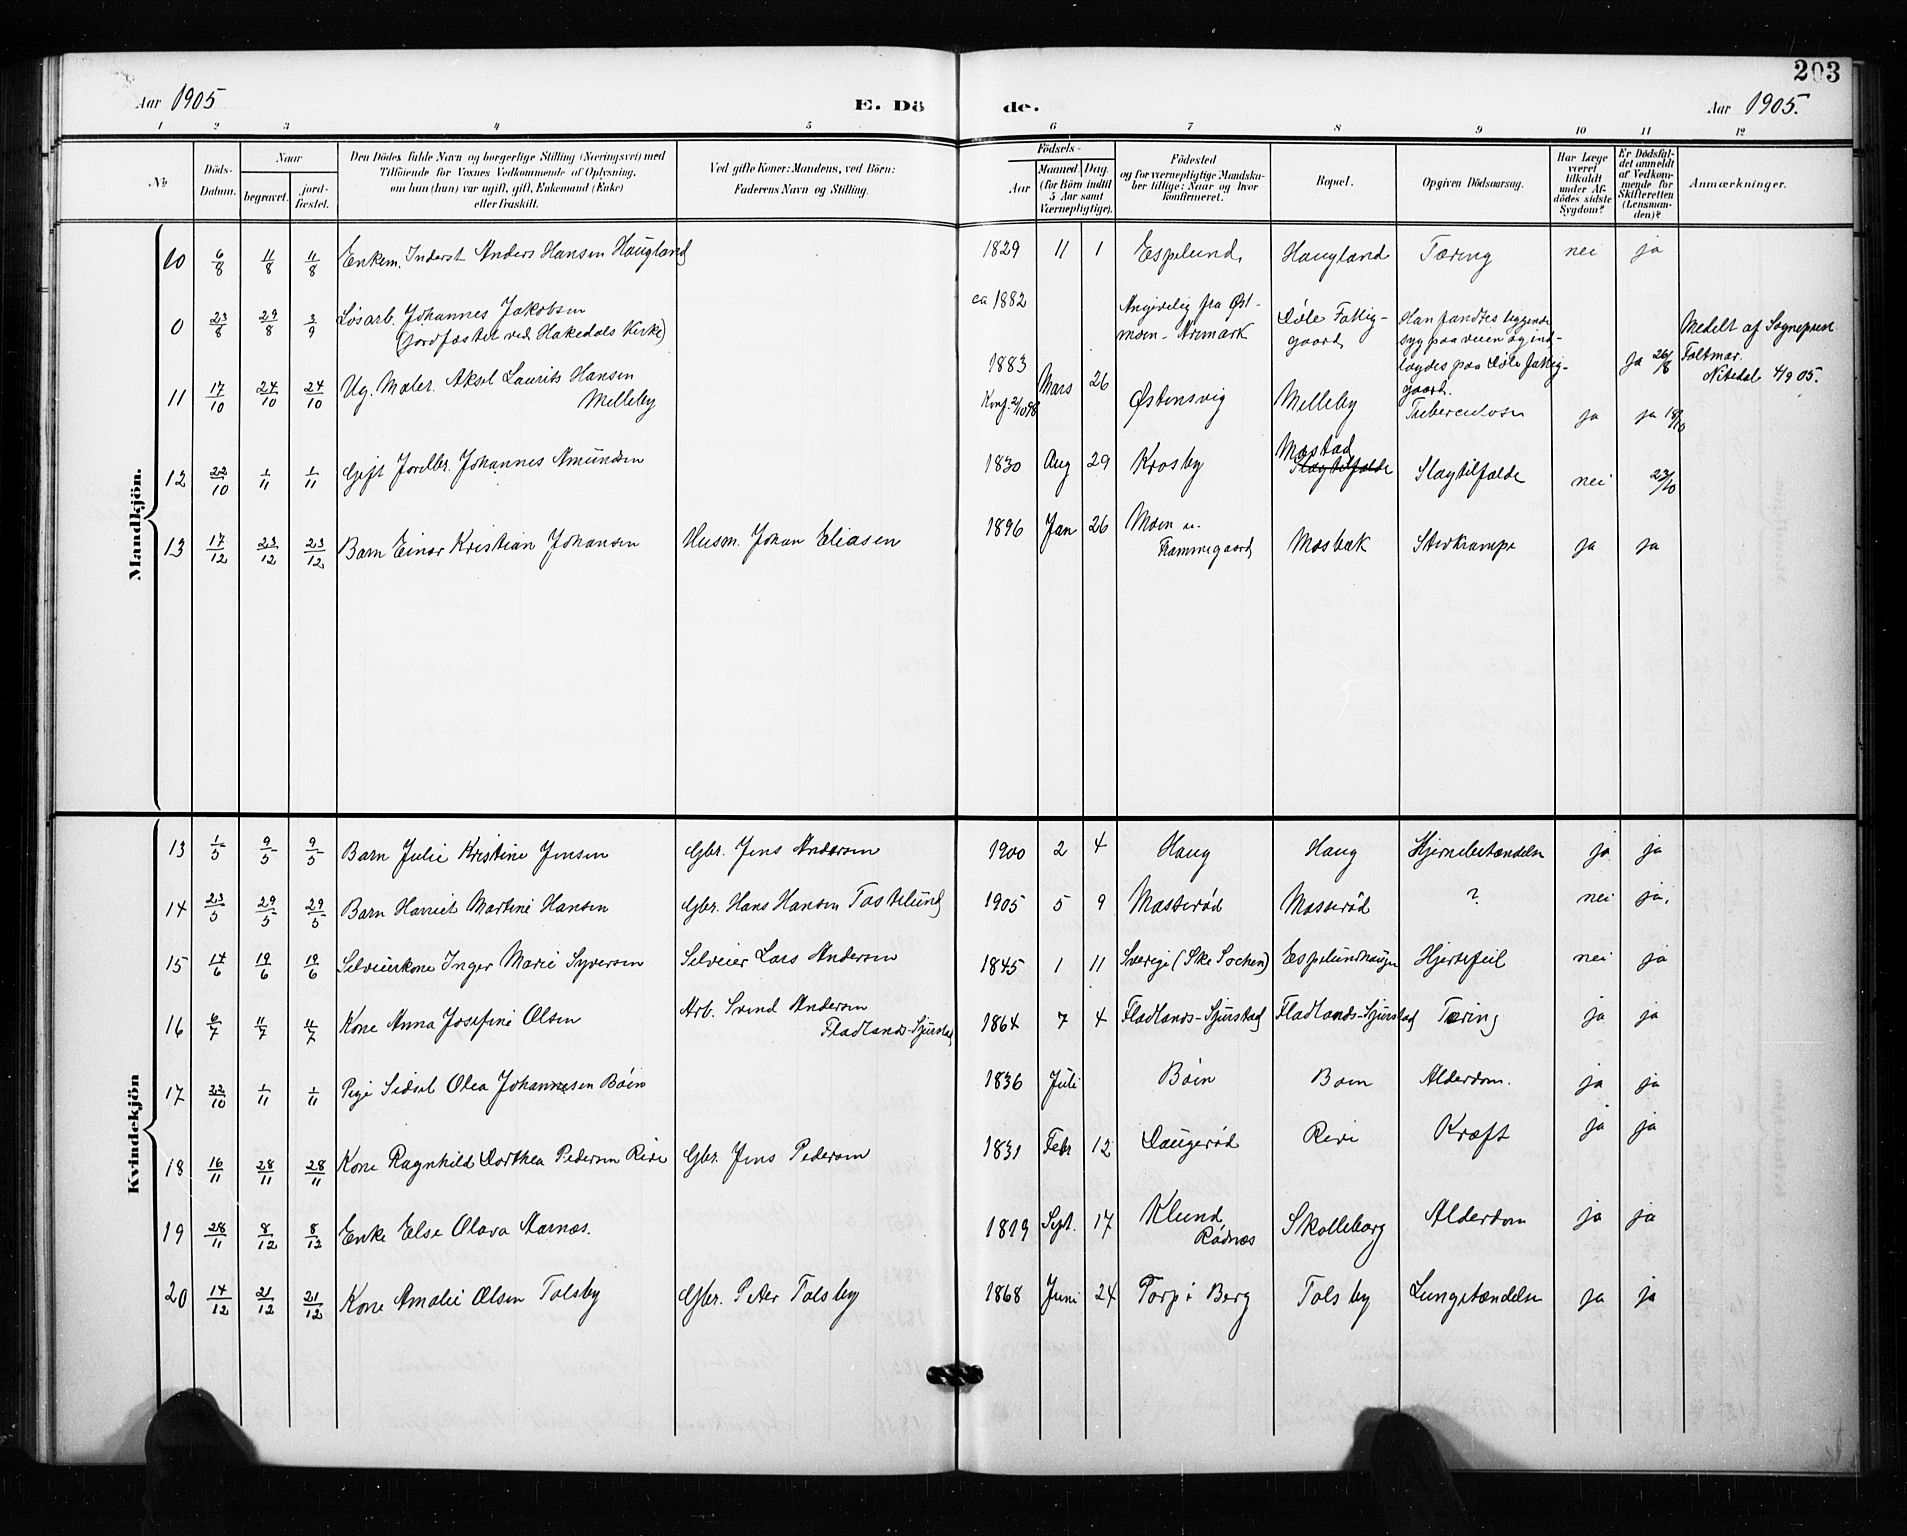 203
Aar 1905 E. Dö de. Aar 1905.
1 2 3 4 5 6 7 8 9 10 11 12
No
Döds-Datum.
Naar
begravet.
jord-fæstet.
Den Dödes fulde Navn og borgerlige Stilling (Næringsvei) med
Tilföiende for Voxnes Vedkommende af Oplysning,
om han (hun) var ugift, gift, Enkemand (Enke)
eller fraskilt.
Ved gifte Koner: Mandens, ved Börn:
Faderens Navn og Stilling.
Födsels-
Aar
Maaned Dag.
(for Börn indtil
5 Aar samt
Værnepligtige).
Födested
og for værnepligtige Mandska-
ber tillige: Naar og hvor
konfirmeret.
Bopæl.
Opgiven Dödsaarsag.
Har Læge
været
tilkaldt
under Af-
dödes sidste
Sygdom?
Er Dödsfal-
det anmeldt
af Vedkom-
mende for
Skifteretten
(Lensman-
den)?
Anmærkninger.
Mandkjön.
10 6/8 11/8 11/8 Enkem. Inderst Anders Hansen Haugland 1829 11 1 Espelund, Haugland Tæring nei ja
0 23/8 29/8 3/9 Løsarb. Johannes Jakobsen
(jordfæstet ved Hakedals Kirke)
ca 1882 Angivelig fra Øst-
moen - Aremark
Døle Fattig-
gaard
Han fandtes liggende
syg paa veien og ind-
lagdes paa Døle Fattig-
gaard.
Ja 26/8
Medelt af Sogneprest
Faltmar.
Nitedal 4/9 05.
11 17/10 24/10 24/10 Ug. Maler. Aksel Laurits Hansen
Melleby
1883 Mars 26
Konf. 2/10 98
Østensvig Melleby Tuberculose ja ja 18/10
12 22/10 1/11 1/11 Gift Jordbr. Johannes Amundsen 1830 Aug 29 Krosby Mostad
Slagtilfælde Slagtilfælde nei 23/10
13 17/12 23/12 23/12 Barn Einar Kristian Johansen Husm. Johan Eliasen 1896 Jan 26 Moen u.
Rammegaard Mosbæk Stivkrampe ja ja
Kvindekjön
13 1/5 9/5 9/5 Barn Julie Kristine Jensen Gbr. Jens Andersen 1900 2 4 Haug Haug Hjernebetændelse ja ja
14 23/5 29/5 29/5 Barn Harriet Martine Hansen Gbr. Hans Hansen Tastelund 1905 5 9 Masserød Masserød ? nei ja.
15 14/6 19/6 19/6 Selveierkone Inger Marie Syversen Selveier Lars Andersen 1845 1 11 Sverige (Ske Sochen) Espelundhaugen Hjertefeil nei ja
16 6/7 11/7 11/7 Kone Anna Josefine Olsen Arb. Svend Andersen
Fladlands-Sjurstad
1864 7 4 Fladlands-Sjurstad Fladlands-Sjurstad Tæring ja ja
17 22/10 1/11 1/11 Pige Sidsel Olea Johannesen Bøin 1836 Juli Bøin Boin Alderdom. ja ja
18 16/11 28/11 28/11 Kone Ragnhild Dorthea Pedersen Reve Gbr. Jens Pedersen 1831 Febr 12 Daugerød Reve Kræft ja ja
19 28/11 8/12 8/12 Enke Else Olava Aarnæs. 1819 Sept. 17 Klund,
Rødnæs Skolleborg Alderdom ja ja
20 14/12 21/12 21/12 Kone Amalie Olsen Tolsby Gbr. Peter Tolsby 1868 Juni 24 Torp i Berg Tolsby Lungebetændelse ja ja